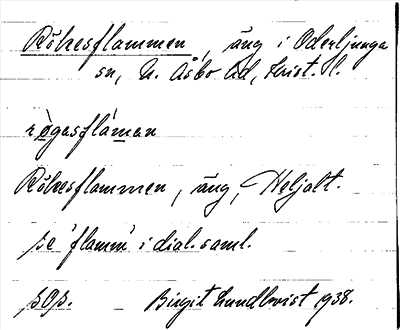 Rökesflammen, äng i Oderljunga
sn, N. Åsbo hd, Krist. l.
rògasflàman
Rökesflammen, äng, Heljalt.
se 'flamm' i dial. saml.
sOp. Birgit Lundkvist 1938.